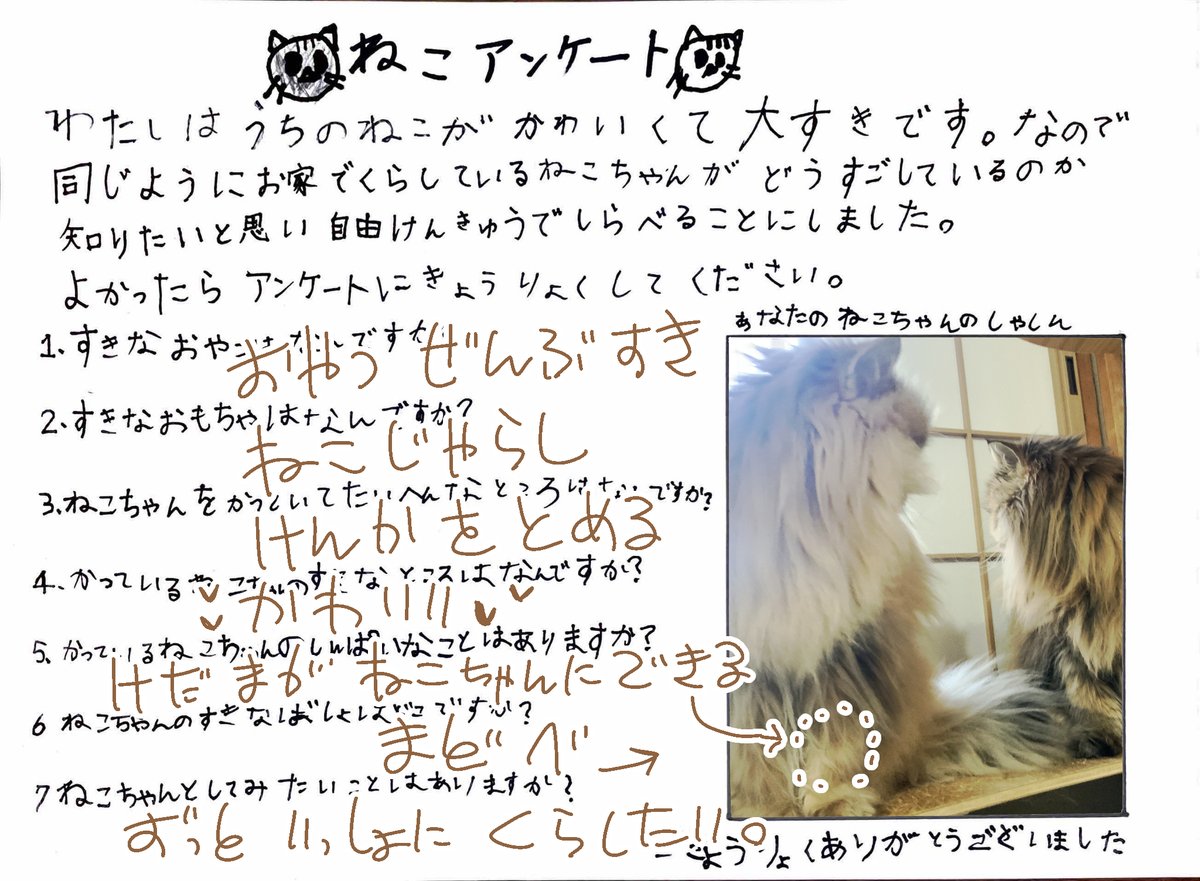 ねこアンケート
わたしはうちのねこがかわいくて大すきです。なので
同じようにお家でくらしているねこちゃんがどうすごしているのか
知りたいと思い自由けんきゅうでしらべることにしました。
よかったらアンケートにきょうりょくしてください。
あなたのねこちゃんのしゃしん
1.すきなおや
おやつ ぜんぶすき
2.すきなおもちゃはなんですか?
ねこじゃらし
3.ねこちゃんをかっていてたいへんなところはなんですか?
けんかをとめる
4.かっているねこちゃんのすきなところはなんですか?
かわいい
5.かっているねこちゃんのしんぱいなことはありますか?
けだまがねこちゃんにできる
6 ねこちゃんのすきなばしょはどこですか?
まどべ→
7 ねこちゃんとしてみたいことはありますか?
ずっといっしょにくらしたい!!。
ごきょうりょくありがとうございました